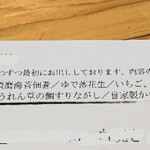 つずつ最初にお出ししております。内容の
須磨海苔佃煮／ゆで落花生／いちご、
うれん草の鯛すりながし／自家製か